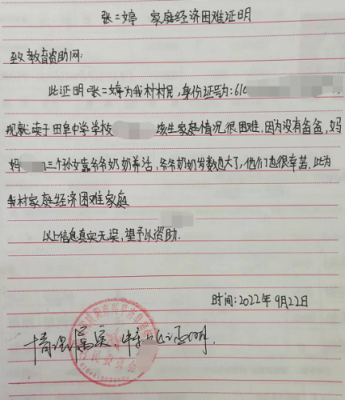 张二婷 家庭经济困难证明
致教育资助网:
此证明张二婷为我村村民,身份证号为:610
现就读于田阜中学学校 该生家庭情况很困难,因为没有爸爸,妈
妈 三个孙女靠爷爷奶奶养活,爷爷奶奶岁数也大了,他们也很辛苦.此为
我村家庭经济困难家庭
以上信息真实无误,望予以资助.
时间:2022年9月22日
情况属实,
证明.